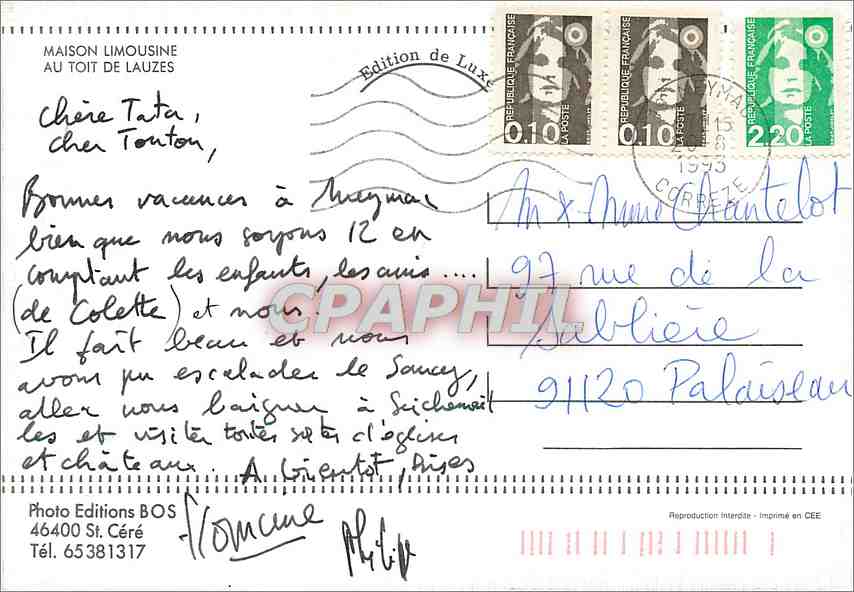 MAISON LIMOUSINE
AU TOIT DE LAUZES
Edition de Luxe
REPUBLIQUE FRANÇAISE
0.10
LA POSTE
REPUBLIQUE FRANÇAISE
0.10
LA POSTE
REPUBLIQUE FRANÇAISE
2.20
LA POSTE
1993
CORREZE
Chère Tata,
cher Tonton,
Bonnes vacances à Meymac
bien que nous soyons 12 en
comptant les enfants, les amis ....
(de Colette) et nous.
Il fait beau et nous
avons pu escalader le Sancy,
aller nous baigner à
les et visiter toutes sortes d'églises
et châteaux. A bientôt, Bises
Romaine
Philipp
M & Mme Chantelot
97 rue de la
Sablière
91120 Palaiseau
CPAPHIL
Photo Editions BOS
46400 St. Céré
Tél. 65381317
Reproduction Interdite - Imprimé en CEE